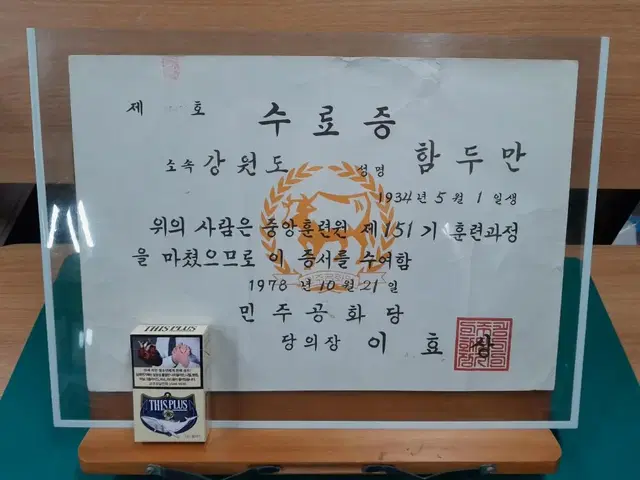 제 호
수료증
소속 강원도 성명 함두만
1934년 5월 1일생
위의 사람은 중앙훈련원 제151기 훈련과정
을 마쳤으므로 이 증서를 수여함
1978년 10월 21일
민주공화당
당의장 이효상
THIS PLUS
THIS PLUS